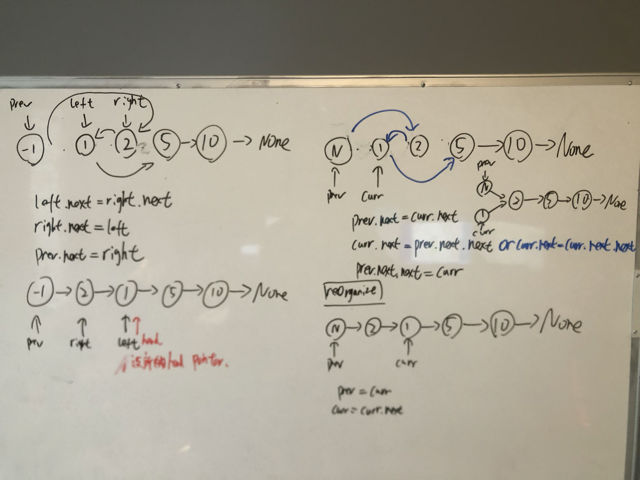 prev left right
-1 1 2 5 10 None
left.next = right.next
right.next = left
prev.next = right
-1 2 1 5 10 None
prev right left head
head pointer.
N 1 2 5 10 None
prev curr
prev
N 2 5 10 None
1
curr
prev.next = curr.next
curr.next = prev.next.next or curr.next = curr.next.next
prev.next.next = curr
reorganize
N 2 1 5 10 None
prev curr
prev = curr
curr = curr.next